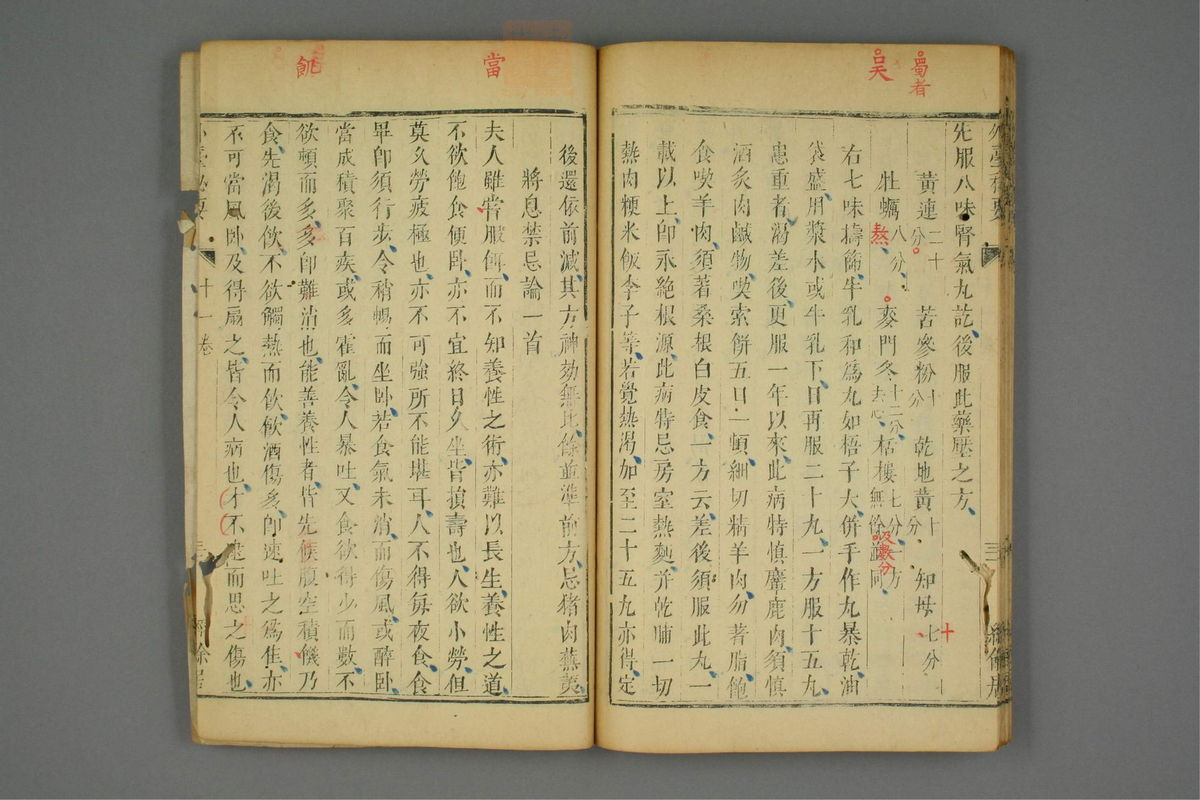 蜀者
吴
先服八味腎氣丸訖後服此藥壓之方
黃連二十分 苦參粉十分 乾地黃十分 知母七分
十
牡蠣八分 麥門冬十二分去心 栝樓七分一方無餘並同
熬
及數分
右七味擣篩牛乳和為丸如梧子大併手作丸暴乾油
袋盛用漿水或牛乳下日再服二十丸一方服十五丸
患重者渴差後更服一年以來此病特慎麞鹿肉須慎
酒炙肉鹹物喫索餅五日一頓細切精羊肉勿著脂飽
食喫羊肉須著桑根白皮食一方云差後須服此丸一
載以上即永絕根源此病特忌房室熱麪并乾脯一切
熱肉粳米飯李子等若覺熱渴加至二十五丸亦得定
後還依前減其方神効無比餘並準前方忌猪肉蕪荑
將息禁忌論一首
當
夫人雖嘗服餌而不知養性之術亦難以長生養性之道
不欲飽食便卧亦不宜終日久坐皆損壽也人欲小勞但
莫久勞疲極也亦不可強所不能堪耳人不得每夜食食
畢即須行步令稍暢而坐卧若食氣未消而傷風或醉卧
當成積聚百疾或多霍亂令人暴吐又食欲得少而數不
欲頓而多多即難消也能善養性者皆先候腹空積饑乃
食先渴後飲不欲觸熱而飲飲酒傷多即速吐之為佳亦
不可當風卧及得扇之皆令人病也才不逮而思之傷也
十一卷